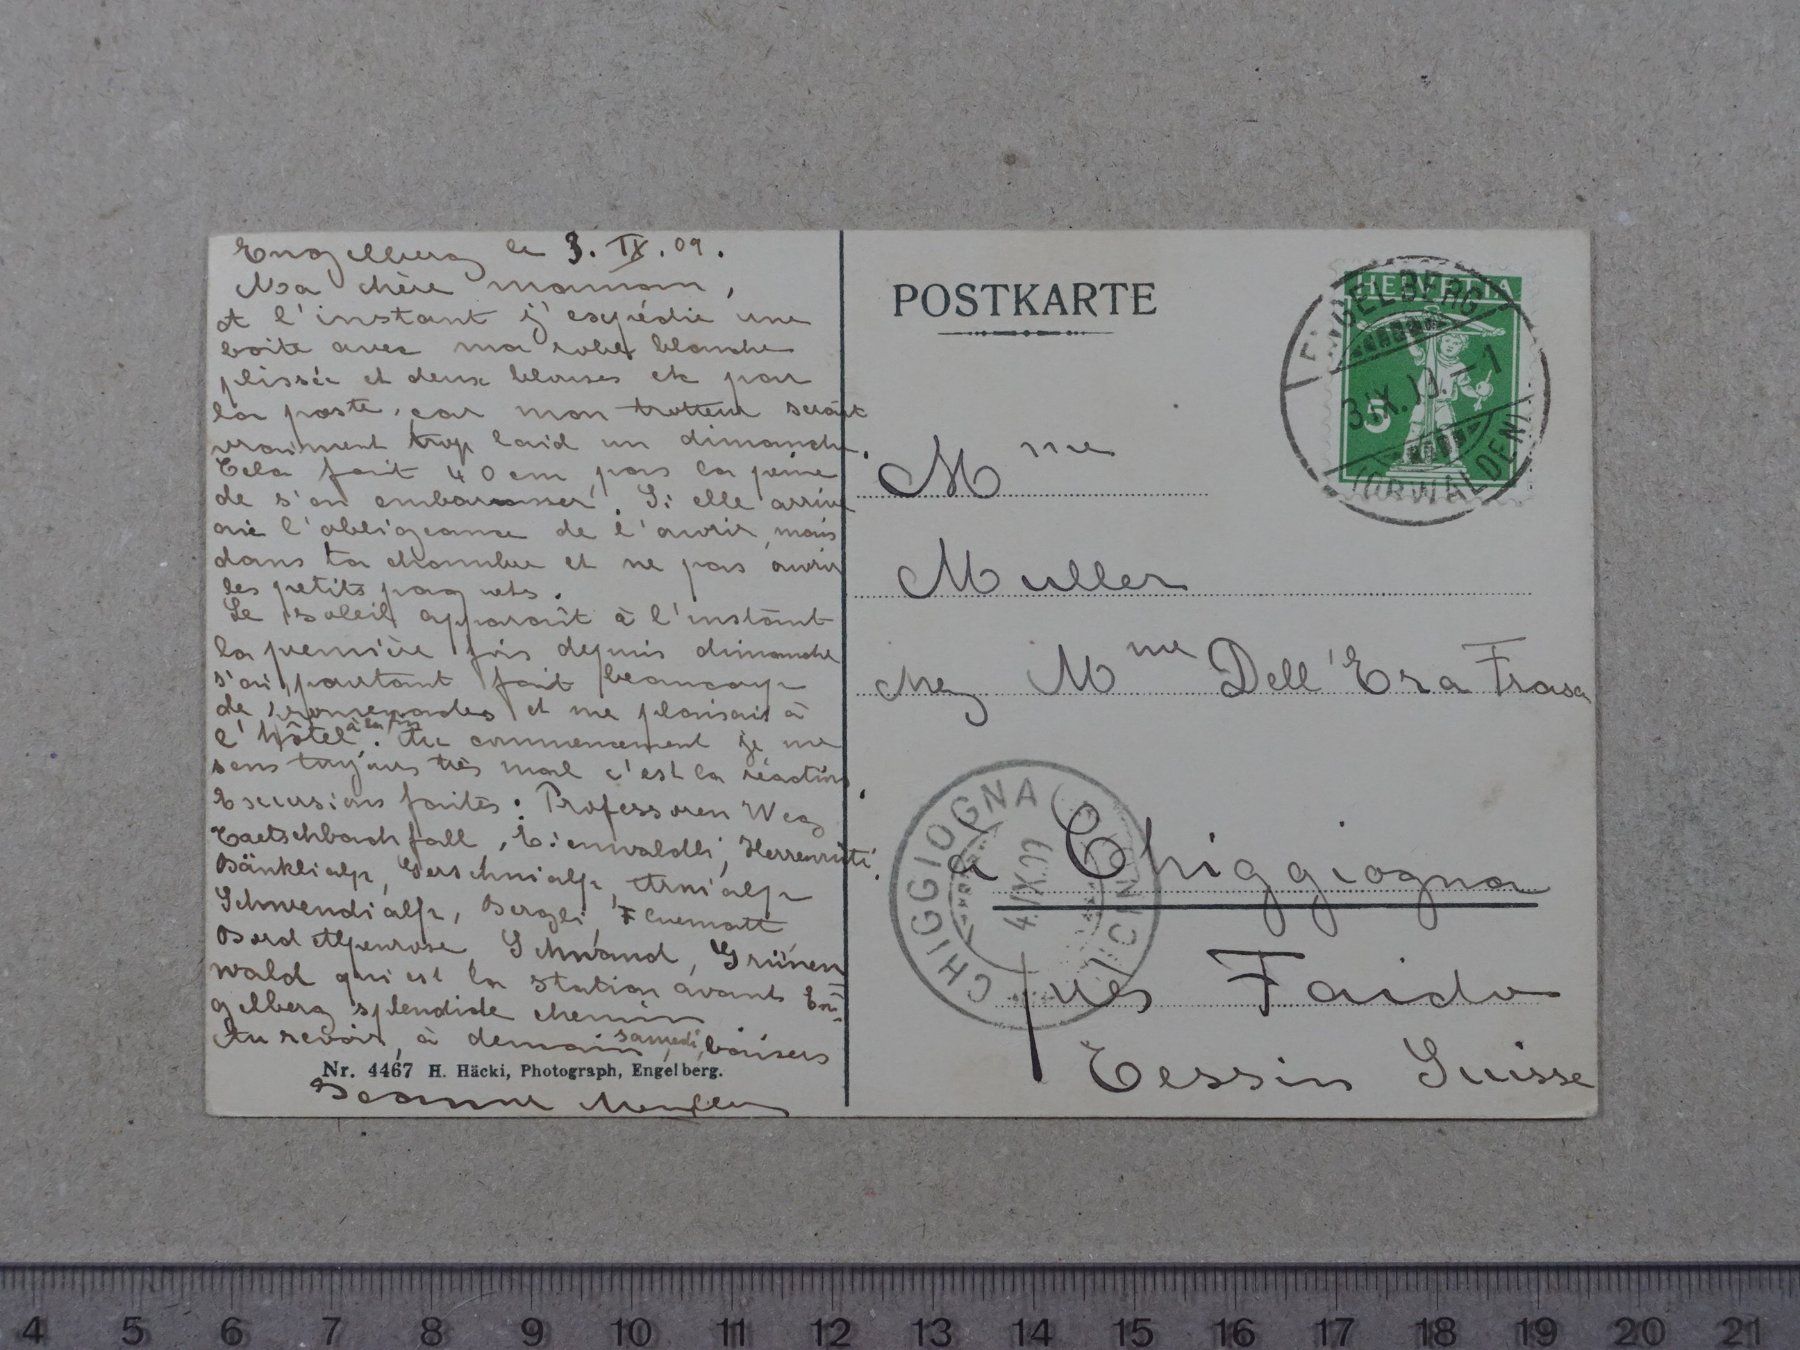 Engelberg le 3. IX. 09.
Ma chère maman,
A l'instant j'expédie une
boite avec ma robe blanche
plissée et deux blouses etc par
la poste, car mon trotteur serait
vraiment trop laid un dimanche.
Cela fait 40 cm pas la peine
de s'en embarasser. Si elle arrive
aie l'obligeance de l'ouvrir, mais
dans ta chambre et ne pas ouvrir
les petits paquets.
Le soleil apparaît à l'instant
la première fois depuis dimanche
j'ai pourtant fait beaucoup
de promenades et me plaisais à
l'hôtel à la fin. Au commencement je me
sens toujours très mal c'est la réaction.
Excursions faites: Professoren Weg
Taetschbachfall, Eienwäldli, Herrenrüti,
Bänklialp, Gerschnialp, Arnialp
Schwendialp, Bergli, Fluematt
Bord Alpenrose, Schwand, Grünen
wald qui est la station avant En-
gelberg splendide chemin
Au revoir, à demain samedi, baisers
Nr. 4467 H. Häcki, Photograph, Engelberg.
Jeanne Muller
POSTKARTE
HELVETIA
5
ENGELBERG
3.IX.09.-1
(UNTERWALDEN)
Mme
Muller
chez Mme Dell'Era Frasa
CHIGGIOGNA (TICINO)
4.IX.09
à Chiggiogna
près Faido
Tessin Suisse
4 5 6 7 8 9 10 11 12 13 14 15 16 17 18 19 20 21